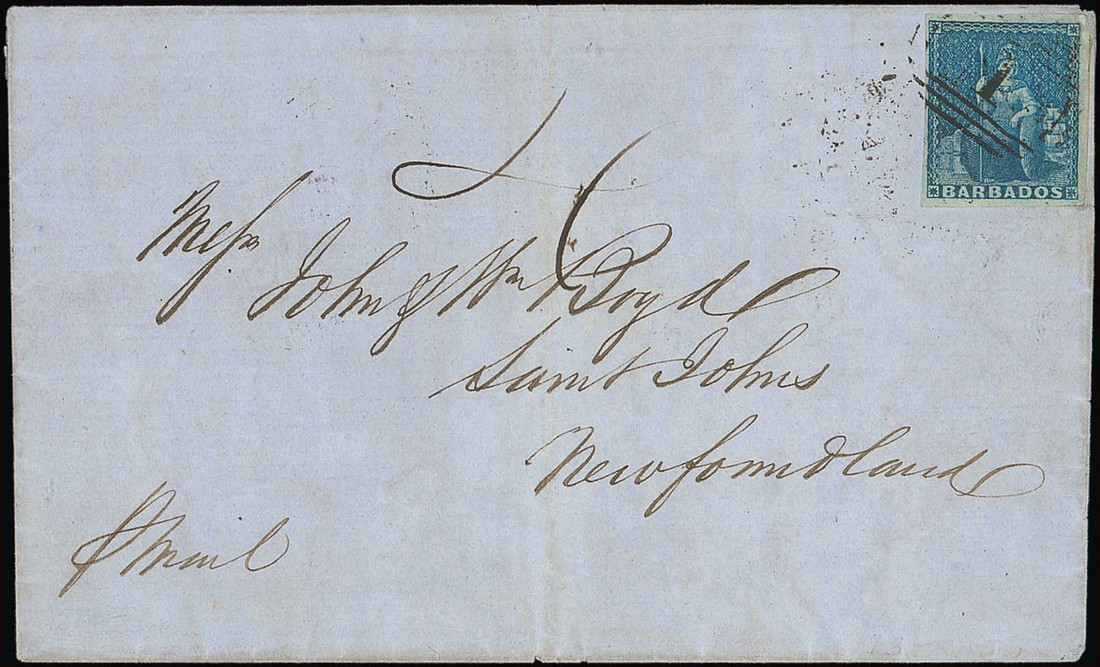 BARBADOS
6
Messrs
John & Wm Boyd
Saint Johns
Newfoundland
P Mail